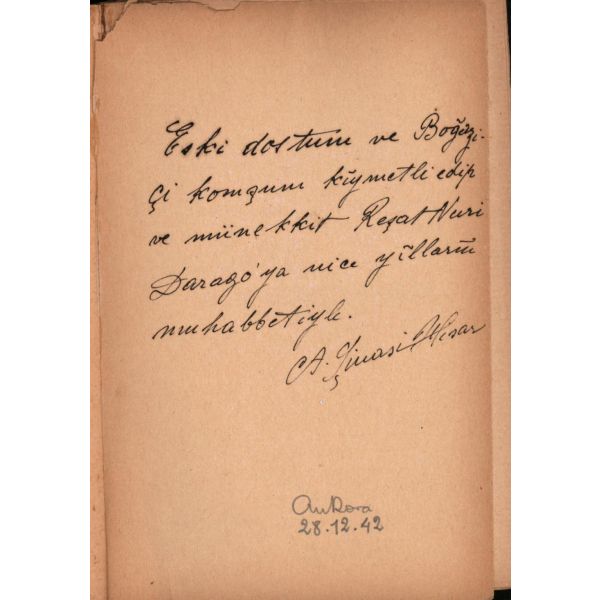 Eski dostum ve Boğazi-
çi komşum kıymetli edip
ve münekkit Reşat Nuri
Darago'ya nice yılların
muhabbetiyle.
A. Şinasi Hisar
Ankara
28.12.42